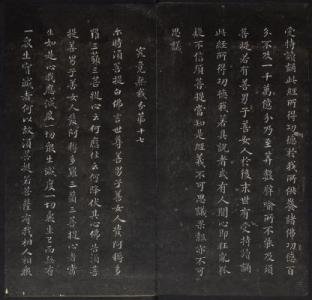 受持讀誦此經所得功德於我所供養諸佛功德百
分不及一千萬億分乃至算數譬喻所不能及須
菩提若有善男子善女人於後末世有受持讀誦
此經所得功德我若具說者或有人聞心即狂亂狐
疑不信須菩提當知是經義不可思議果報亦不可
思議
究竟無我分第十七
爾時須菩提白佛言世尊善男子善女人發阿耨多
羅三藐三菩提心云何應住云何降伏其心佛告須菩
提善男子善女人發阿耨多羅三藐三菩提心者當
生如是心我應滅度一切眾生滅度一切眾生已而無有
一眾生實滅度者何以故須菩提若菩薩有我相人相眾